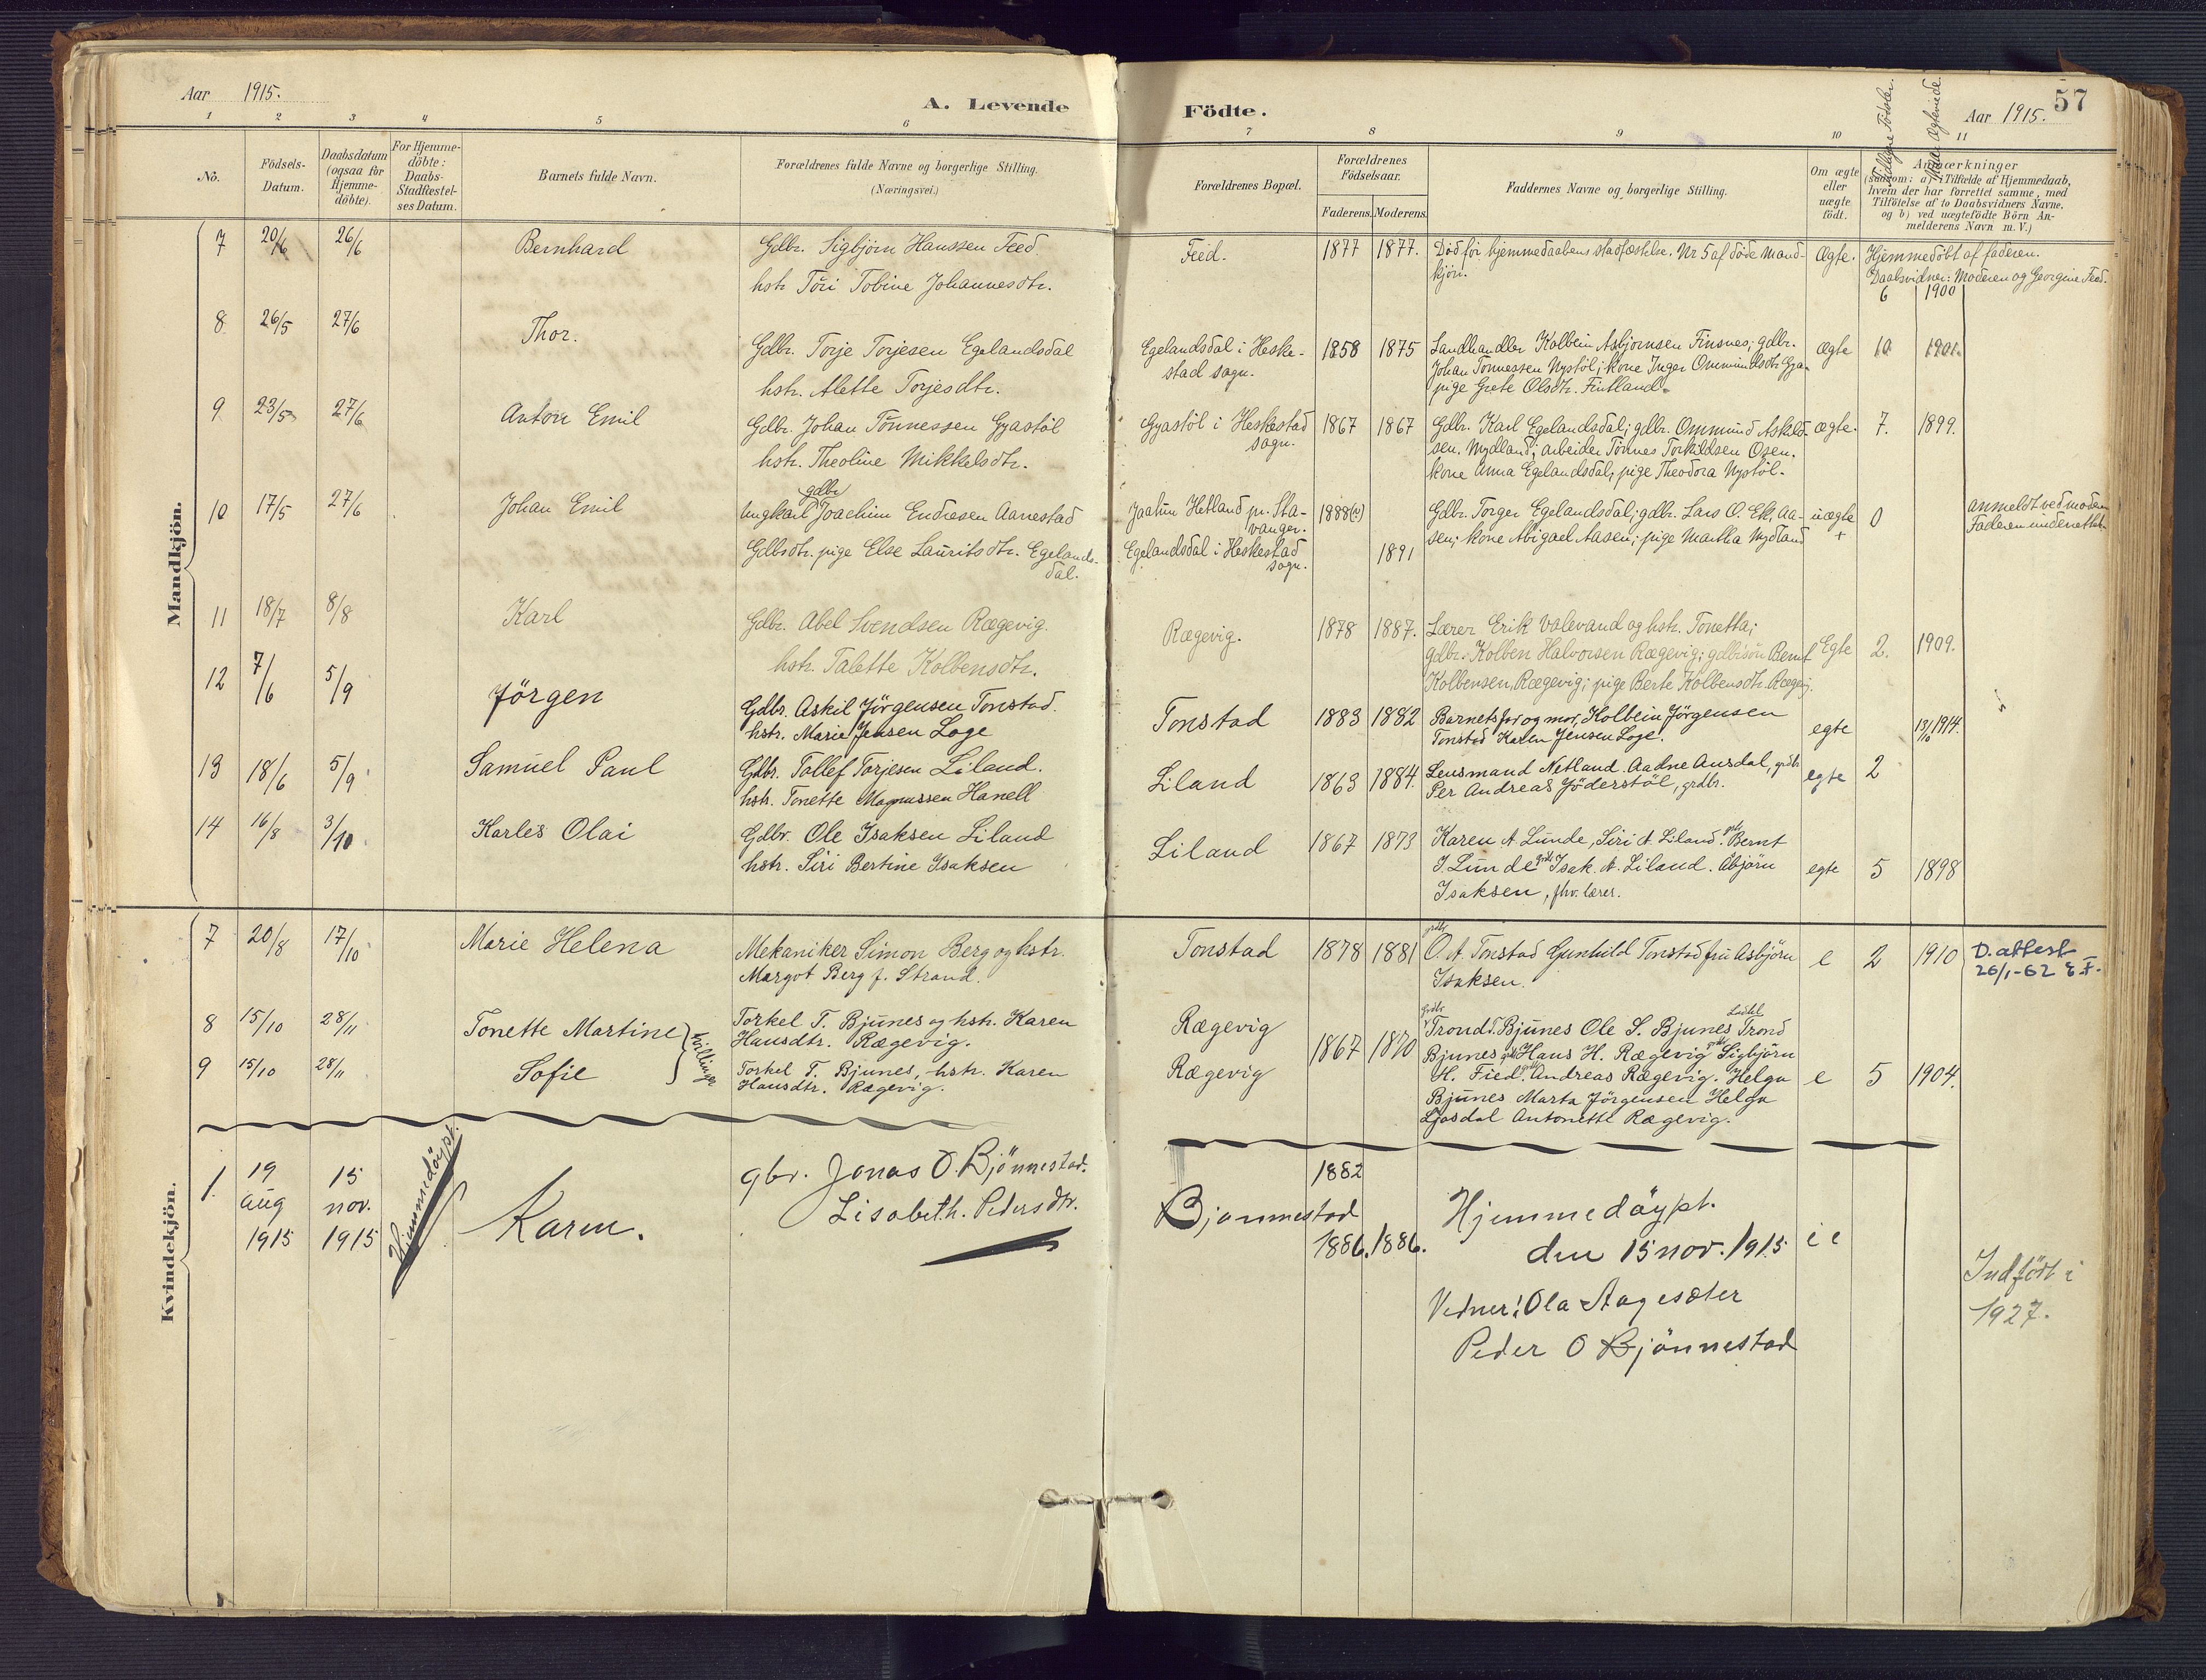 Aar 1915.
A. Levende
Födte.
57
Aar 1915.
1 2 3 4 5 6
7 8 9 10 11
No.
Födsels-
Datum.
Daabsdatum
(ogsaa for
Hjemme-
döbte).
For Hjemme-
döbte:
Daabs-
Stadfæstel-
ses Datum.
Barnets fulde Navn.
Forældrenes fulde Navne og borgerlige Stilling.
(Næringsvei.)
Forældrenes Bopæl.
Forældrenes
Födselsaar.
Faderens. Moderens.
Faddernes Navne og borgerlige Stilling.
Om ægte
eller
uægte
född.
Anmærkninger
(saasom: a) i Tilfælde af Hjemmedaab,
hvem der har forrettet samme, med
Tilföielse af to Daabsvidners Navne,
og b) ved uægtefödte Börn An-
melderens Navn m. V.)
Mandkjön.
7 20/6 26/6 Bernhard
Gdbr. Sigbjörn Hanssen Feed.
hstr. Töri Tobine Johannesdtr.
Feed. 1877 1877.
Död för hjemmedaabens stadfæstelse. Nr 5 af döde Mand-
kjön.
Ægte.
Hjemmedöbt af faderen.
Daabsvidner: Moderen og Georgine Feed.
6 1900
8 26/5 27/6 Thor.
Gdbr. Torje Torjesen Egelandsdal
hstr. Alette Torjesdtr.
Egelandsdal i Heske-
stad sogn.
1858 1875
Landhandler Kolbein Asbjörnsen Finsnes; gdbr.
Johan Tönnessen Nystöl; kone Inger Ommundsdtr. Gya.
pige Grete Olsdtr. Fintland.
ægte 10 1901.
9 23/5 27/6 Anton Emil
Gdbr. Johan Tönnessen Gyastöl
hstr. Theoline Mikkelsdtr.
Gyastöl i Heskestad
sogn.
1867 1867
Gdbr. Karl Egelandsdal; gdbr. Ommund Askild-
sen. Mydland; arbeider Tönnes Torkildsen Osen.
kone Anna Egelandsdal; pige Theodora Nystöl.
ægte. 7. 1899.
10 17/5 27/6 Johan Emil
gdbr
ungkarl Joachim Endresen Aanestad
Gdbrdtr. pige Else Lauritsdtr. Egelands-
dal.
Jaatun Hetland pr. Sta-
vanger.
Egelandsdal i Heskestad
sogn.
1888
1891
Gdbr. Torger Egelandsdal; gdbr. Lars O. Ek, Aa-
sen; kone Abigael Aasen; pige Martha Mydland
uægte
+
0
anmeldt ved moderen
Faderen underrettet.
11 18/7 8/8 Karl
Gdbr. Abel Svendsen Rægevig.
hstr. Talette Kolbensdtr.
Rægevig. 1878 1887.
Lærer Erik Valevand og hstr. Tonetta;
gdbr. Kolben Halvorsen Rægevig; gdbrsön Bernt
Kolbensen, Rægevig; pige Berte Kolbensdtr. Rægevig.
Egte 2. 1909.
12 7/6 5/9 Jörgen
Gdbr. Askil Jörgensen Tonstad.
hstr. Marie Jensen Loge
Tonstad 1883 1882
Barnets far og mor, Kolbein Jörgensen
Tonstad Karen Jensen Loge.
egte 13/10 1914.
13 18/6 5/9 Samuel Paul
Gdbr. Tollef Torjesen Liland.
hstr. Tonette Magnussen Hanell
Liland 1863 1884.
Lensmand Netland. Aadne Ausdal, grdbr.
Per Andreas Jöderstöl, grdbr.
egte 2
14 16/8 3/10 Karles Olai
Gdbr. Ole Isaksen Liland
hstr. Siri Bertine Isaksen
Liland 1867 1873
Karen A Lunde, Siri A Liland. Bernt
I. Lunde Isak. A. Liland. Abjörn
Isaksen, fhv. lærer.
egte 5 1898
Kvindekjön.
7 20/8 17/10 Marie Helena
Mekaniker Simon Berg og hstr.
Margot Berg f. Strand.
Tonstad 1878 1881
O. A. Tonstad Gunhild Tonstad fru Asbjörn
Isaksen.
e 2 1910
D. attest
26/1-62 E.F.
8 15/10 28/11 Tonette Martine
Torkel T. Bjunes og hstr. Karen
Hansdtr. Rægevig.
Rægevig
tvillinger.
9 15/10 28/11 Sofie
Torkel T. Bjunes, hstr. Karen
Hansdtr. Rægevig.
Rægevig
1867 1870
Trond T. Bjunes Ole S. Bjunes Trond
Bjunes Hans H. Rægevig Sigbjörn
H. Fied. Andreas Rægevig. Helga
Bjunes Marta Jörgensen Helga
Ljosdal Antonette Rægevig.
e 5 1904.
1. 19
aug
1915
15
nov.
1915
Hjemmedöypt.
Karen.
gbr. Jonas O. Bjönnestad.
Lisabeth. Pedersdtr.
Bjönnestad
1882
1886. 1886.
Hjemmedöypt.
den 15 nov. 1915
Vidner: Ola Aagesæter
Peder O Bjönnestad
Indfört i
1927.